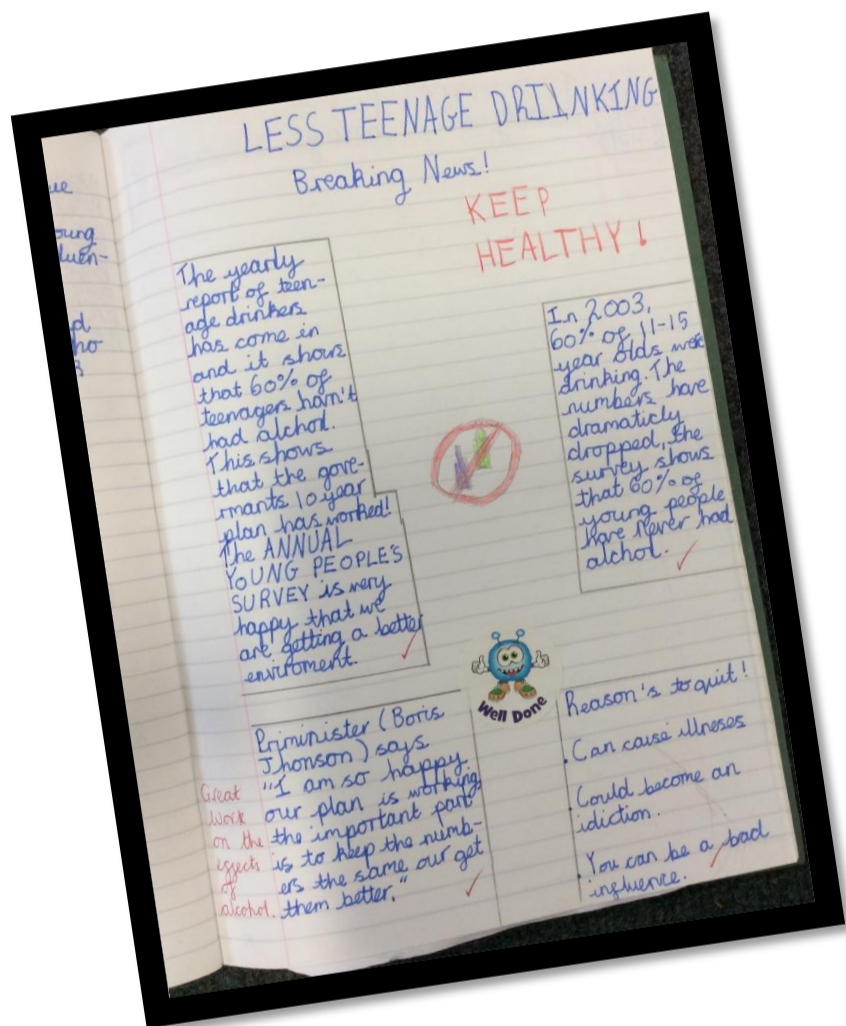 ue
oung
luen-
d
ho
3
LESS TEENAGE DRIINKING
Breaking News!
KEEP
HEALTHY!
The yearly
report of teen-
age drinkers
has come in
and it shows
that 60% of
teenagers havn't
had alchol.
This shows
that the gove-
rmants 10 year
plan has worked!
The ANNUAL
YOUNG PEOPLE'S
SURVEY is very
happy that we
are getting a better
enviroment.
In 2003,
60% of 11-15
year olds were
drinking. The
numbers have
dramaticly
dropped, the
survey shows
that 60% of
young people
have never had
alchol.
Well Done
Priminister (Boris
Jhonson) says
"I am so happy.
our plan is working
the important part
is to keep the numb-
ers the same our get
them better."
Great
work
on the
effects
of
alcohol.
Reason's to quit!
. Can cause illneses
. Could become an
idiction.
. You can be a bad
influence.